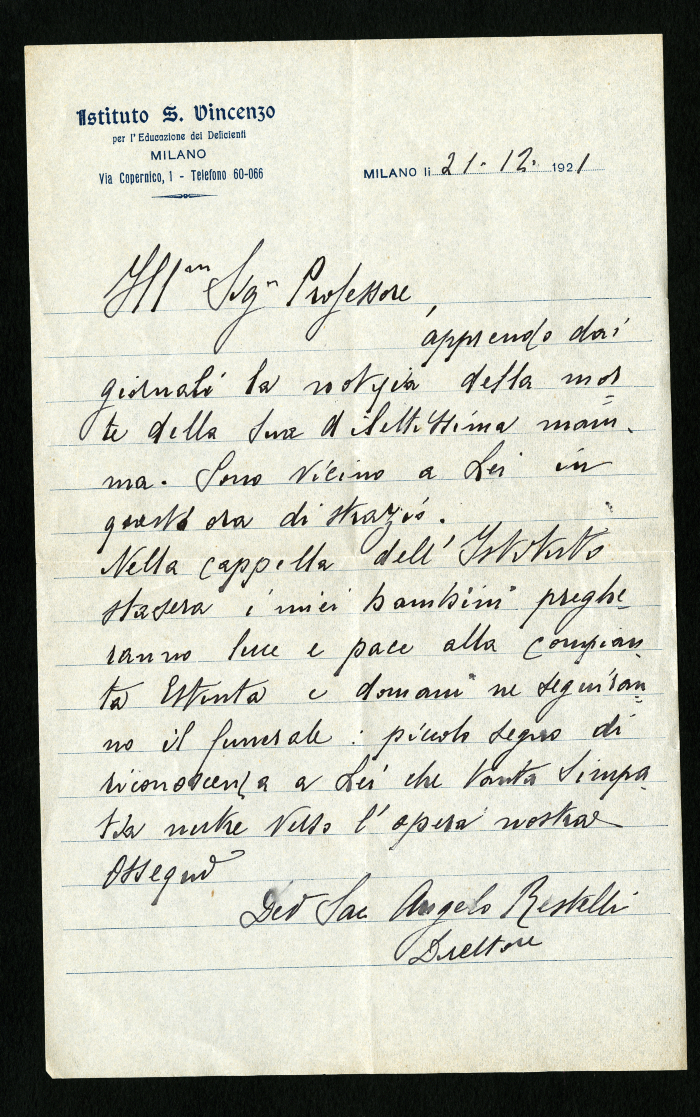 Istituto S. Vincenzo
per l'Educazione dei Deficienti
MILANO
Via Copernico, 1 - Telefono 60-066
MILANO li 21. 12. 1921
Ill.mo Sigr Professore
apprendo dai
giornali la notizia della mor
te della Sua dilettissima mam
ma. Sono vicino a Lei in
quest'ora di strazio.
Nella cappella dell'Istituto
stasera i miei bambini preghe
ranno luce e pace alla compian
ta Estinta e domani ne seguiran
no il funerale: piccolo segno di
riconoscenza a Lei che tanta simpa
tia nutre verso l'opera nostra
Ossequi
Dev Sac Angelo Restelli
Direttore